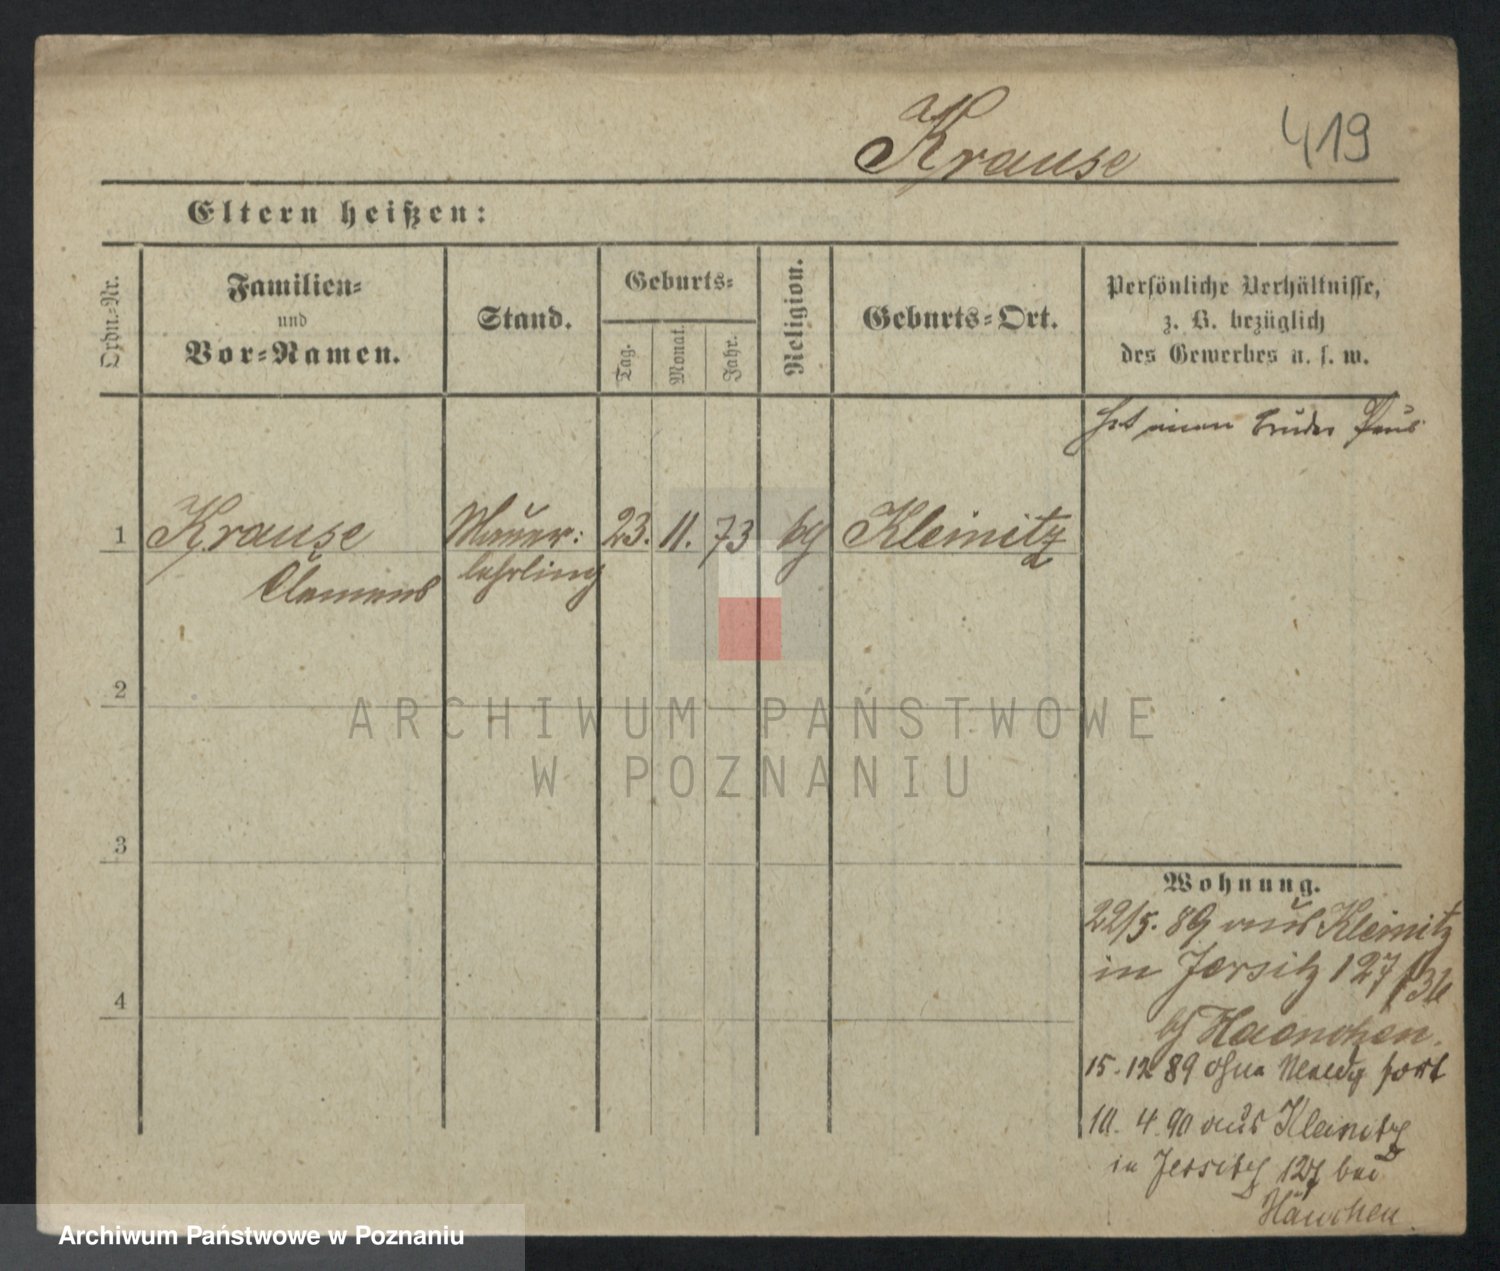 Krause
419
Eltern heißen:
Ordn.-Nr.
Familien-
und
Vor-Namen.
Stand.
Geburts-
Tag.
Monat.
Jahr.
Religion.
Geburts-Ort.
Persönliche Verhältnisse,
z. B. bezüglich
des Gewerbes u. s. w.
hat einen Bruder Paul
1 Krause Maurer: 23. 11. 73 Kleinitz
Clemens lehrling
2
3
4
Wohnung.
22/5. 89 aus Kleinitz
in Jersitz 127
Haenchen.
15.12 89 ohne Meldg fort
10. 4. 90 aus Kleinitz
in Jersitz 127 bei
Hänchen
ARCHIWUM PAŃSTWOWE
W POZNANIU
Archiwum Państwowe w Poznaniu